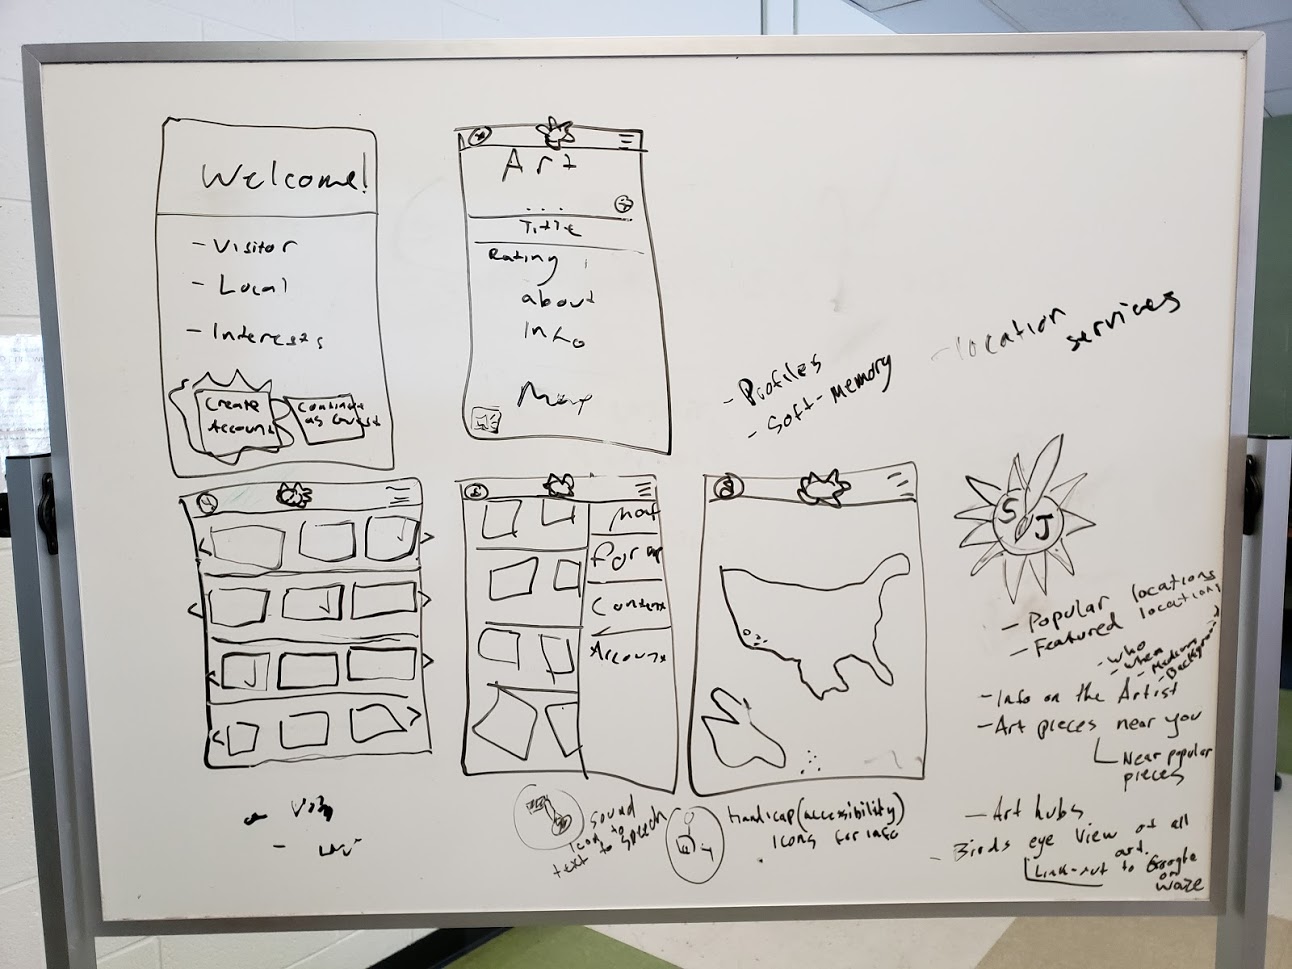 Welcome!
- Visitor
- Local
- Interests
Create
Account
Continue
as Guest
Art
...
Title
Rating
about
Info
Map
- Profiles
- Soft-memory
- location
services
Map
For
Account
S J
- Popular locations
- Featured locations
- who
- when
- Medium
- Background
- Info on the Artist
- Art pieces near you
Near popular
pieces
- Art hubs
- Birds eye view of all
art.
Link-out to Google
or
waze
sound
icon to
text to speech
Handicap (accessibility)
Icons for info